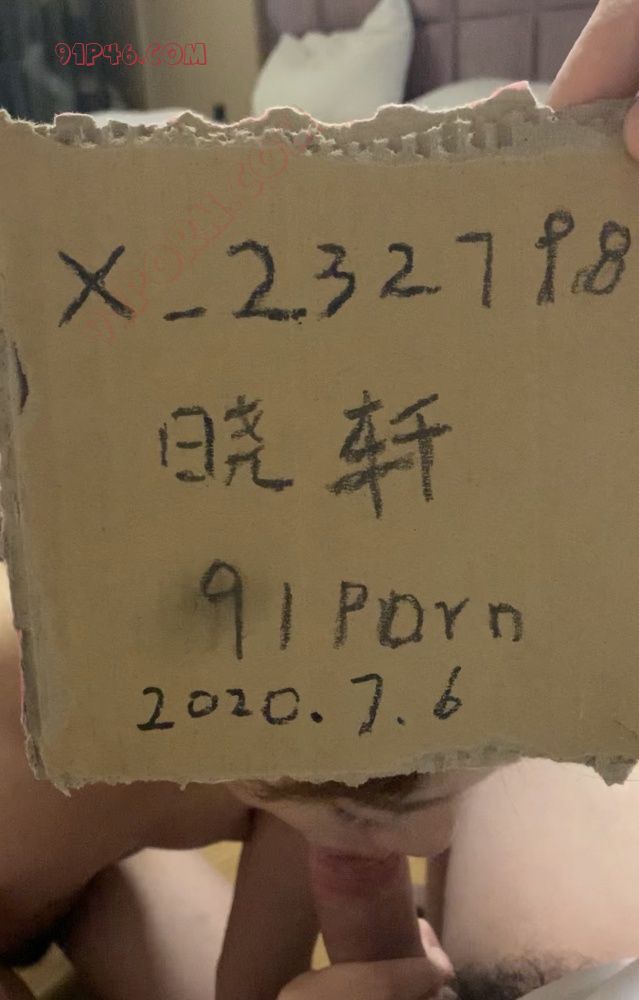 91P46.COM
X_232798
晓轩
91Porn
2020.7.6